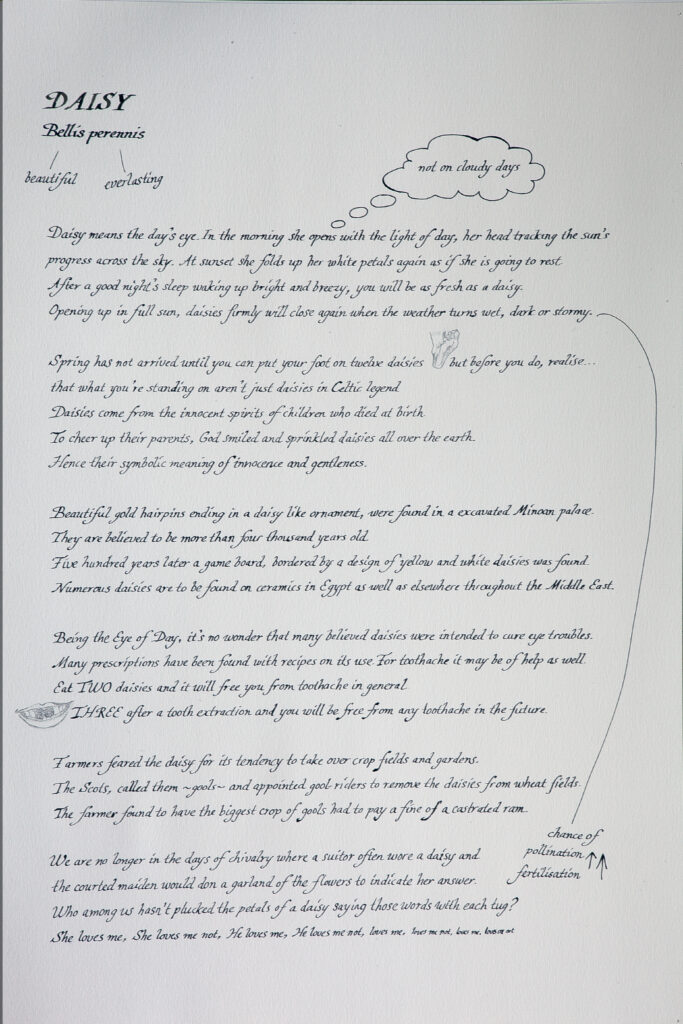 DAISY
Bellis perennis
beautiful everlasting
not on cloudy days
Daisy means the day's eye. In the morning she opens with the light of day, her head tracking the sun's
progress across the sky. At sunset she folds up her white petals again as if she is going to rest
After a good night's sleep waking up bright and breezy, you will be as fresh as a daisy.
Opening up in full sun, daisies firmly will close again when the weather turns wet, dark or stormy.
Spring has not arrived until you can put your foot on twelve daisies but before you do, realise...
that what you're standing on aren't just daisies in Celtic legend
Daisies come from the innocent spirits of children who died at birth
To cheer up their parents, God smiled and sprinkled daisies all over the earth.
Hence their symbolic meaning of innocence and gentleness.
Beautiful gold hairpins ending in a daisy like ornament, were found in a excavated Minoan palace.
They are believed to be more than four thousand years old.
Five hundred years later a game board, bordered by a design of yellow and white daisies was found.
Numerous daisies are to be found on ceramics in Egypt as well as elsewhere throughout the Middle East.
Being the Eye of Day, it's no wonder that many believed daisies were intended to cure eye troubles.
Many prescriptions have been found with recipes on its use. For toothache it may be of help as well.
Eat TWO daisies and it will free you from toothache in general.
THREE after a tooth extraction and you will be free from any toothache in the future.
Farmers feared the daisy for its tendency to take over crop fields and gardens.
The Scots, called them ~gools~ and appointed gool-riders to remove the daisies from wheat fields.
The farmer found to have the biggest crop of gools had to pay a fine of a castrated ram.
chance of
pollination
fertilisation
We are no longer in the days of chivalry where a suitor often wore a daisy and
the courted maiden would don a garland of the flowers to indicate her answer.
Who among us hasn't plucked the petals of a daisy saying those words with each tug?
She loves me, She loves me not, He loves me, He loves me not, loves me, loves me not, loves me, loves me not